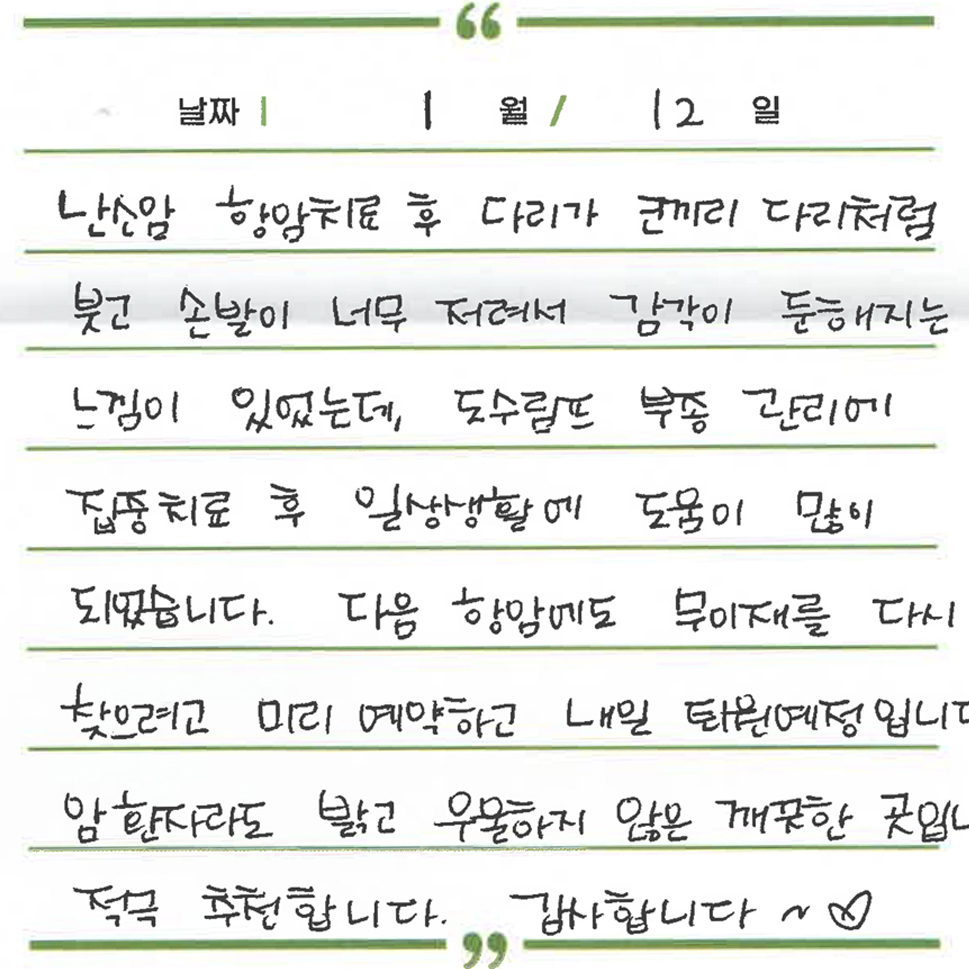 “
날짜 | 1 월 / 12 일
난소암 항암치료 후 다리가 코끼리 다리처럼
붓고 손발이 너무 저려서 감각이 둔해지는
느낌이 있었는데, 도수림프 부종 관리에
집중치료 후 일상생활에 도움이 많이
되었습니다. 다음 항암에도 무이재를 다시
찾으려고 미리 예약하고 내일 퇴원예정입니다
암환자라도 밝고 우울하지 않은 깨끗한 곳입니
적극 추천합니다. 감사합니다 ~ ♡
”